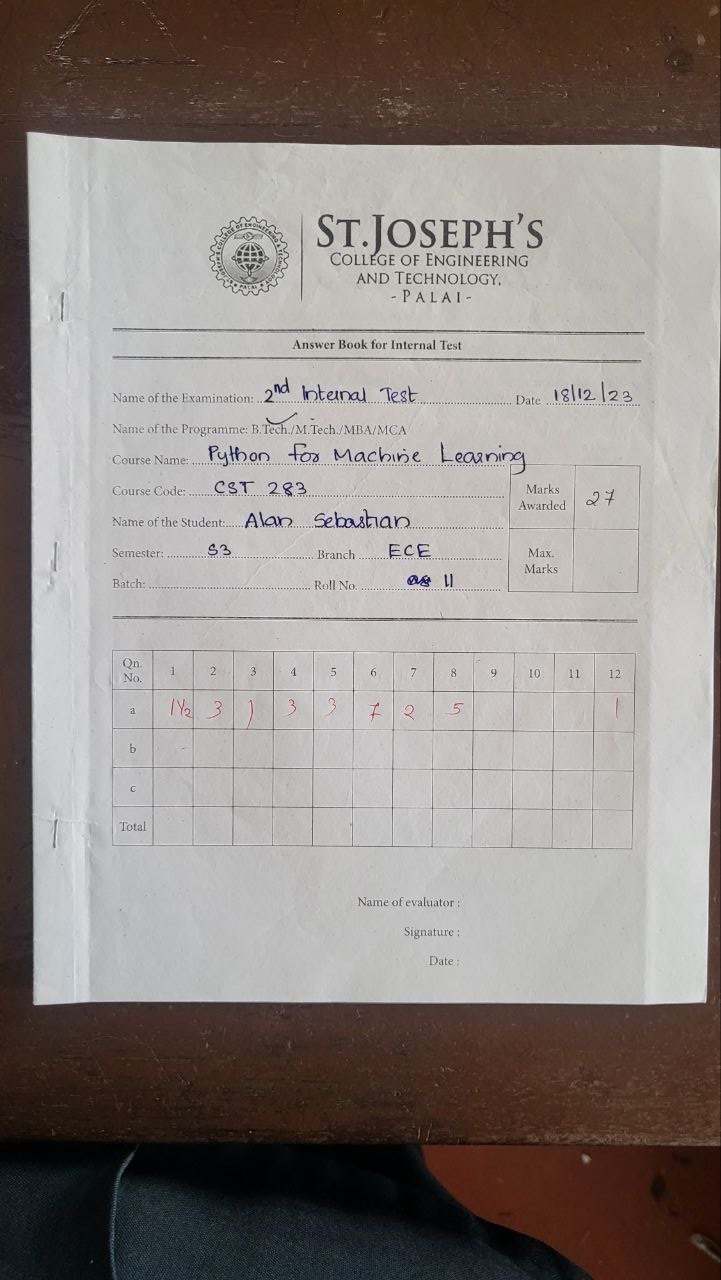 ST.JOSEPH'S
COLLEGE OF ENGINEERING
AND TECHNOLOGY,
- PALAI -
Answer Book for Internal Test
Name of the Examination: 2nd Internal Test Date 18/12/23
Name of the Programme: B.Tech./M.Tech./MBA/MCA
Course Name: Python for Machine Learning
Course Code: CST 283
Marks Awarded 27
Name of the Student: Alan Sebastian
Semester: S3 Branch ECE
Max. Marks
Batch: Roll No. 11
Qn. No. 1 2 3 4 5 6 7 8 9 10 11 12
a 1½ 3 1 3 3 7 2 5 1
b -
c
Total
Name of evaluator :
Signature :
Date :